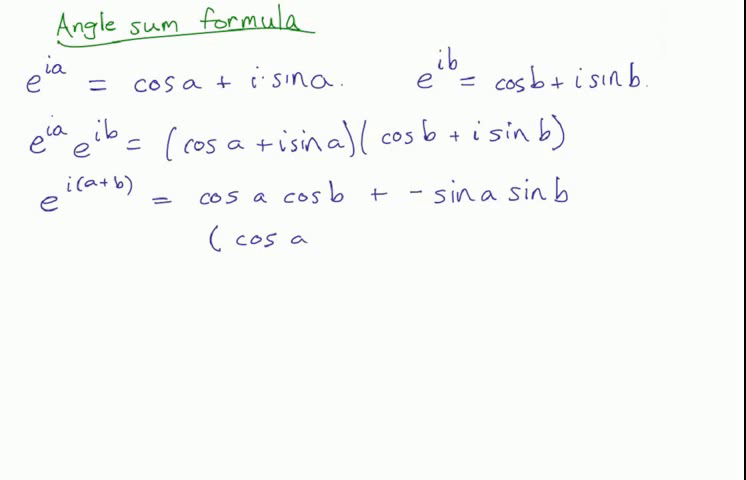 Angle sum formula
e^{ia} = cos a + i·sin a. e^{ib} = cos b + i sin b.
e^{ia} e^{ib} = (cos a + i sin a)(cos b + i sin b)
e^{i(a+b)} = cos a cos b + - sin a sin b
( cos a